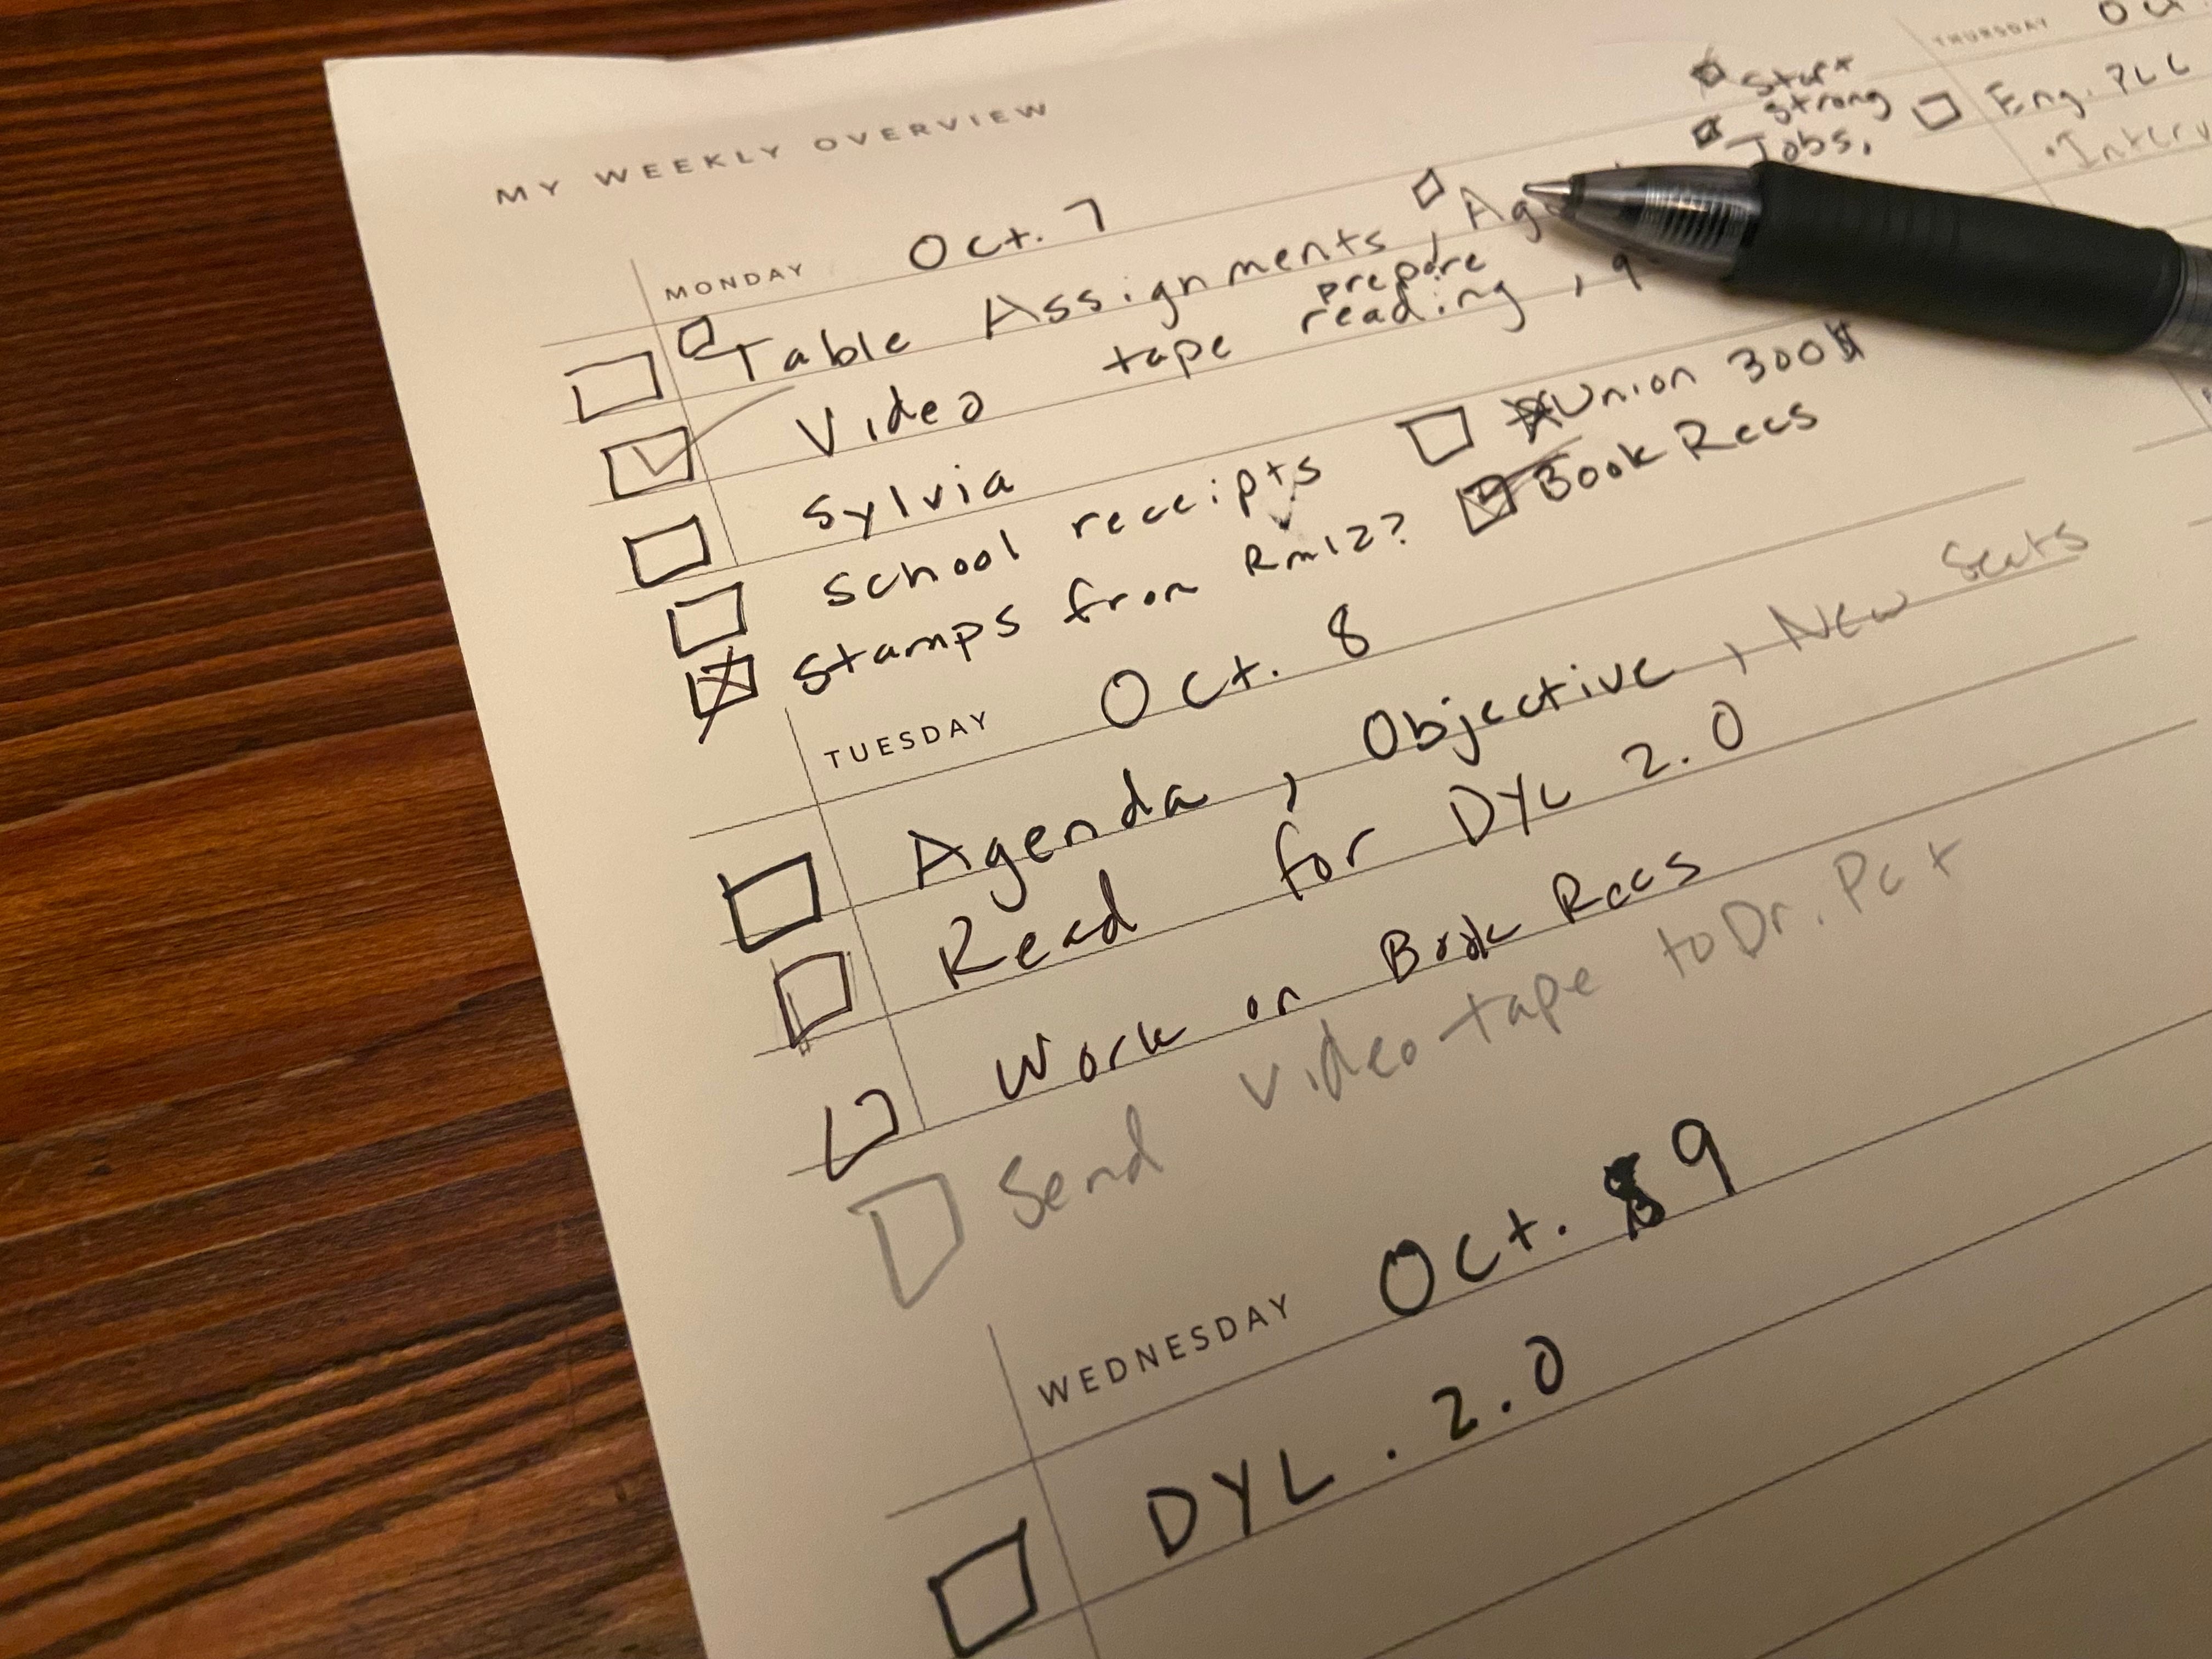 MY WEEKLY OVERVIEW
MONDAY Oct. 7
Table Assignments,
Video tape prepare reading,
Sylvia
School receipts
Stamps from Rm12?
Union 300
Book Recs
Start
Strong
Jobs,
TUESDAY Oct. 8
Agenda, Objective, New Seats
Read for DYL 2.0
Work on Book Recs
Send Video tape to Dr. Pat
WEDNESDAY Oct. 9
DYL. 2.0
THURSDAY
Eng. PLC